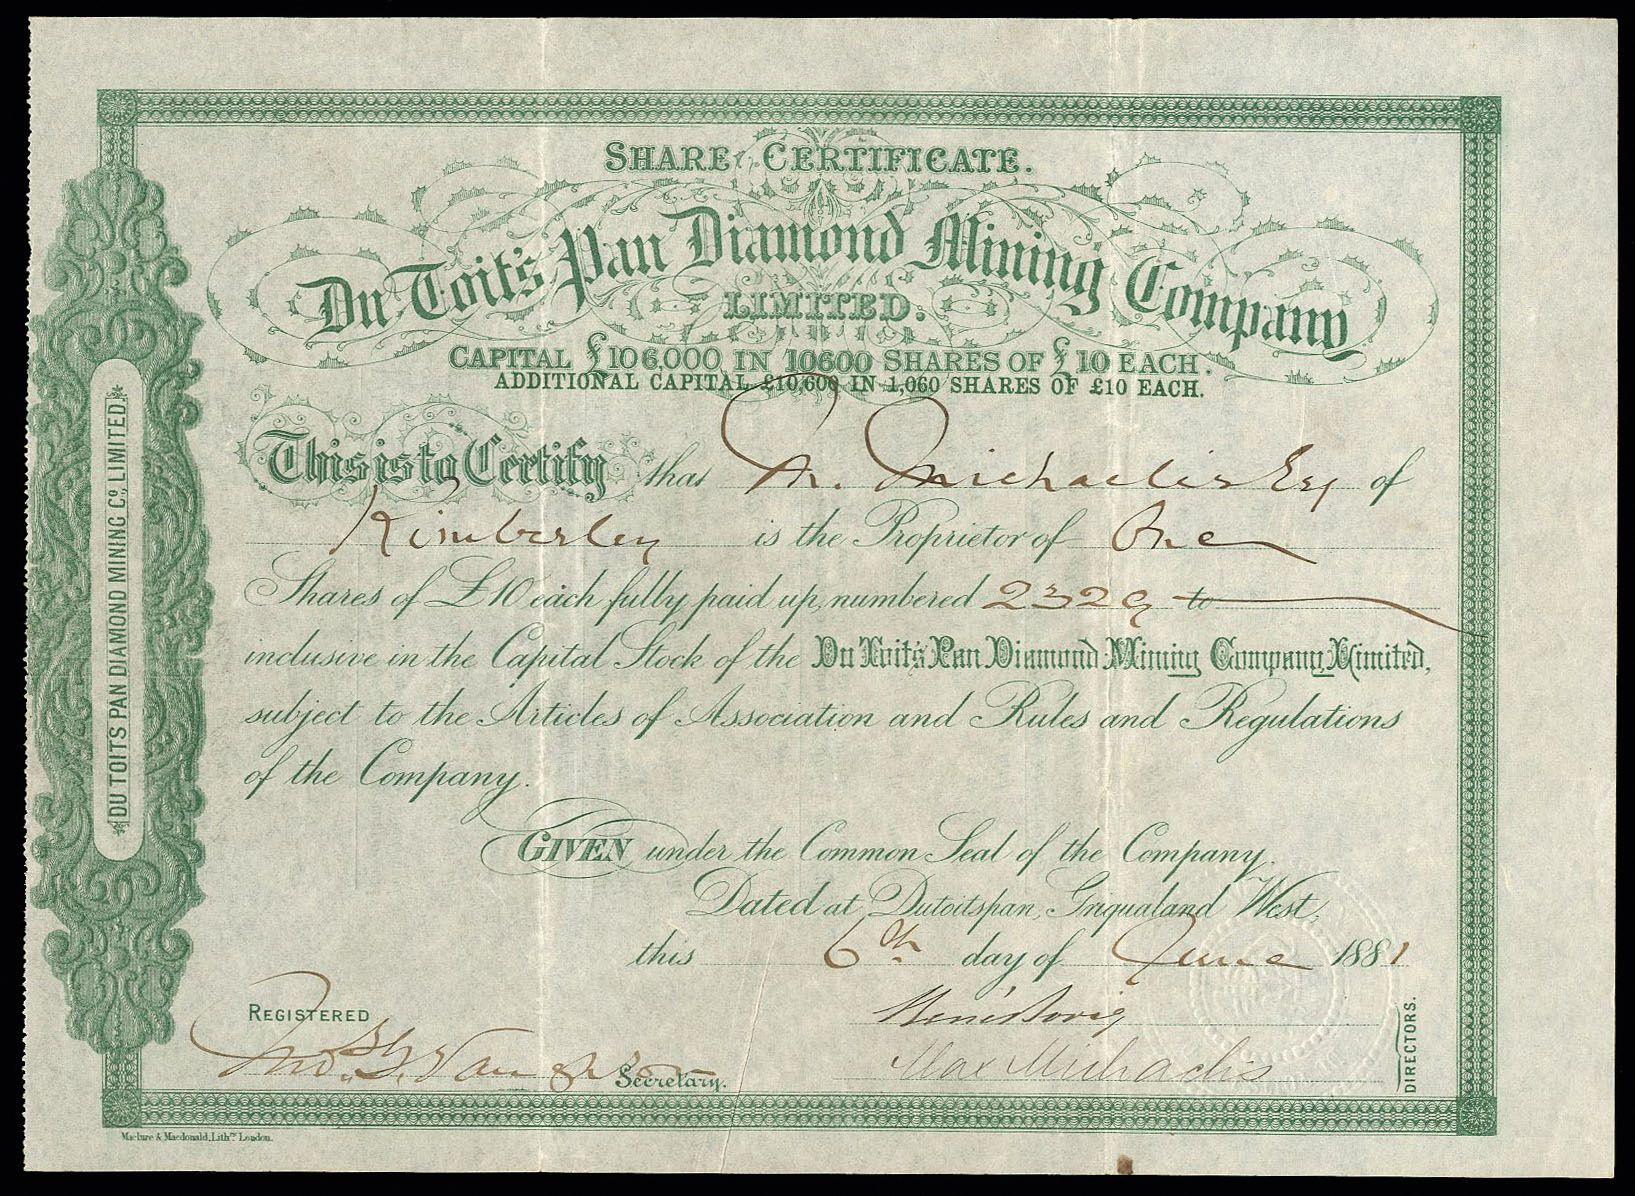 SHARE CERTIFICATE.
Du Toit's Pan Diamond Mining Company
LIMITED.
CAPITAL £106,000 IN 10600 SHARES OF £10 EACH.
ADDITIONAL CAPITAL £10,600 IN 1,060 SHARES OF £10 EACH.
This is to Certify that M. Michaelis Esq of
Kimberley is the Proprietor of One
Shares of £10 each fully paid up, numbered 2329 to
inclusive in the Capital Stock of the Du Toit's Pan Diamond Mining Company, Limited,
subject to the Articles of Association and Rules and Regulations
of the Company.
GIVEN under the Common Seal of the Company.
Dated at Dutoitspan, Griqualand West,
this 6th day of June 1881
REGISTERED
Secretary.
Max Michaelis
DIRECTORS.
DU TOITS PAN DIAMOND MINING Co, LIMITED.
Maclure & Macdonald, Lithrs London.